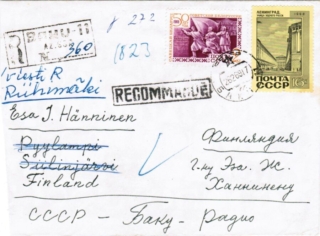 R
360
8 272
1823
60
ЛЕНИНГРАД
ПОЧТА
СССР
viesti R
Riihimäki
RECOMMANDÉ
Esa I. Hänninen
Pyylampi
Siilinjärvi
Finland
Финляндия
г-ну Эза. Ж.
Ханнинену
СССР - Баку - Радио